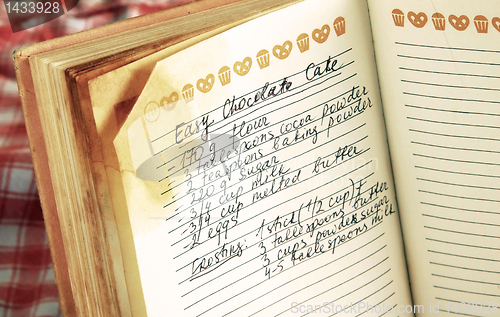 Easy Chocolate Cake
170g flour
2 teaspoons cocoa powder
3 teaspoons baking powder
220g sugar
3/4 cup milk
3/4 cup melted butter
2 eggs
Frosting: 1 stick (1/2 cup)
3 tablespoons butter
3 cups powder sugar
4-5 tablespoons milk
shutterstock
1433928